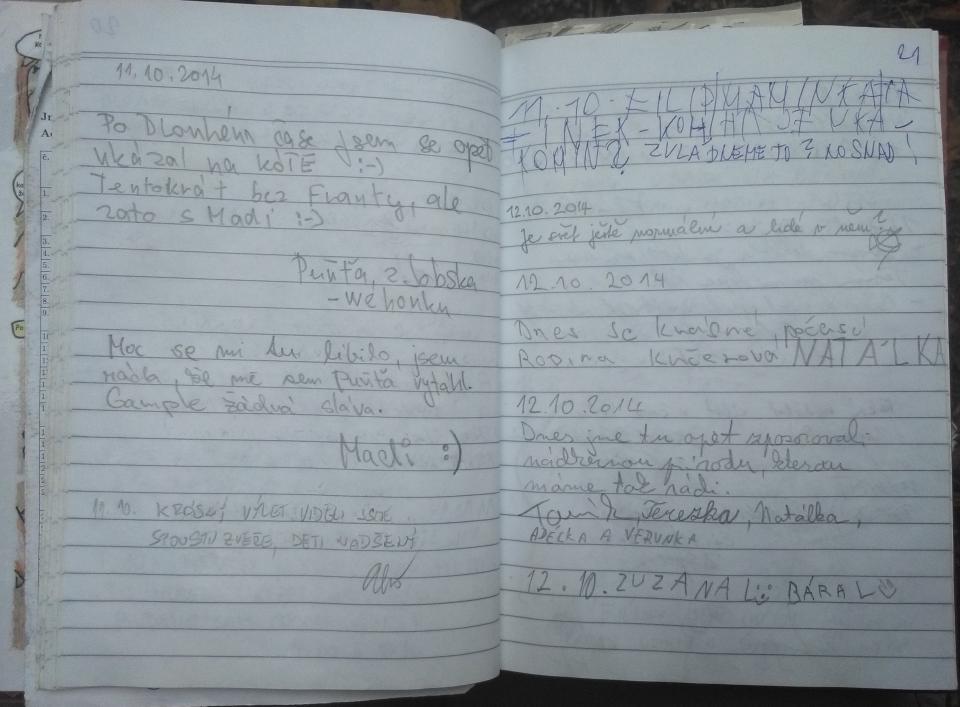 11.10.2014
Po Dlouhém čase jsem se opět
ukázal na KOTĚ :-)
Tentokrát bez Franty, ale
zato s Madi :-)
Puňťa, z.
Moc se mi tu líbilo, jsem
ráda, že mě sem Puňťa vytáhl.
žádná sláva.
Madi :)
11.10. KRÁSNÝ VÝLET VIDĚLI JSME
SPOUSTU ZVĚŘE, DĚTI NADŠENÝ
21
11.10. FILIP, MAMINKA, TA-
TÍNEK -
ZVLÁDNEME TO? NO SNAD!
12.10.2014
Je svět ještě normální a lidé v něm?
12.10.2014
Dnes je krásné počasí
Rodina Kučerová NATÁLKA
12.10.2014
Dnes jsme tu opět zpozorovali
nádhernou přírodu, kterou
máme tak rádi.
Tomík, Terezka, Natálka,
ADÉLKA A VERUNKA
12.10. ZUZANA L BÁRA L